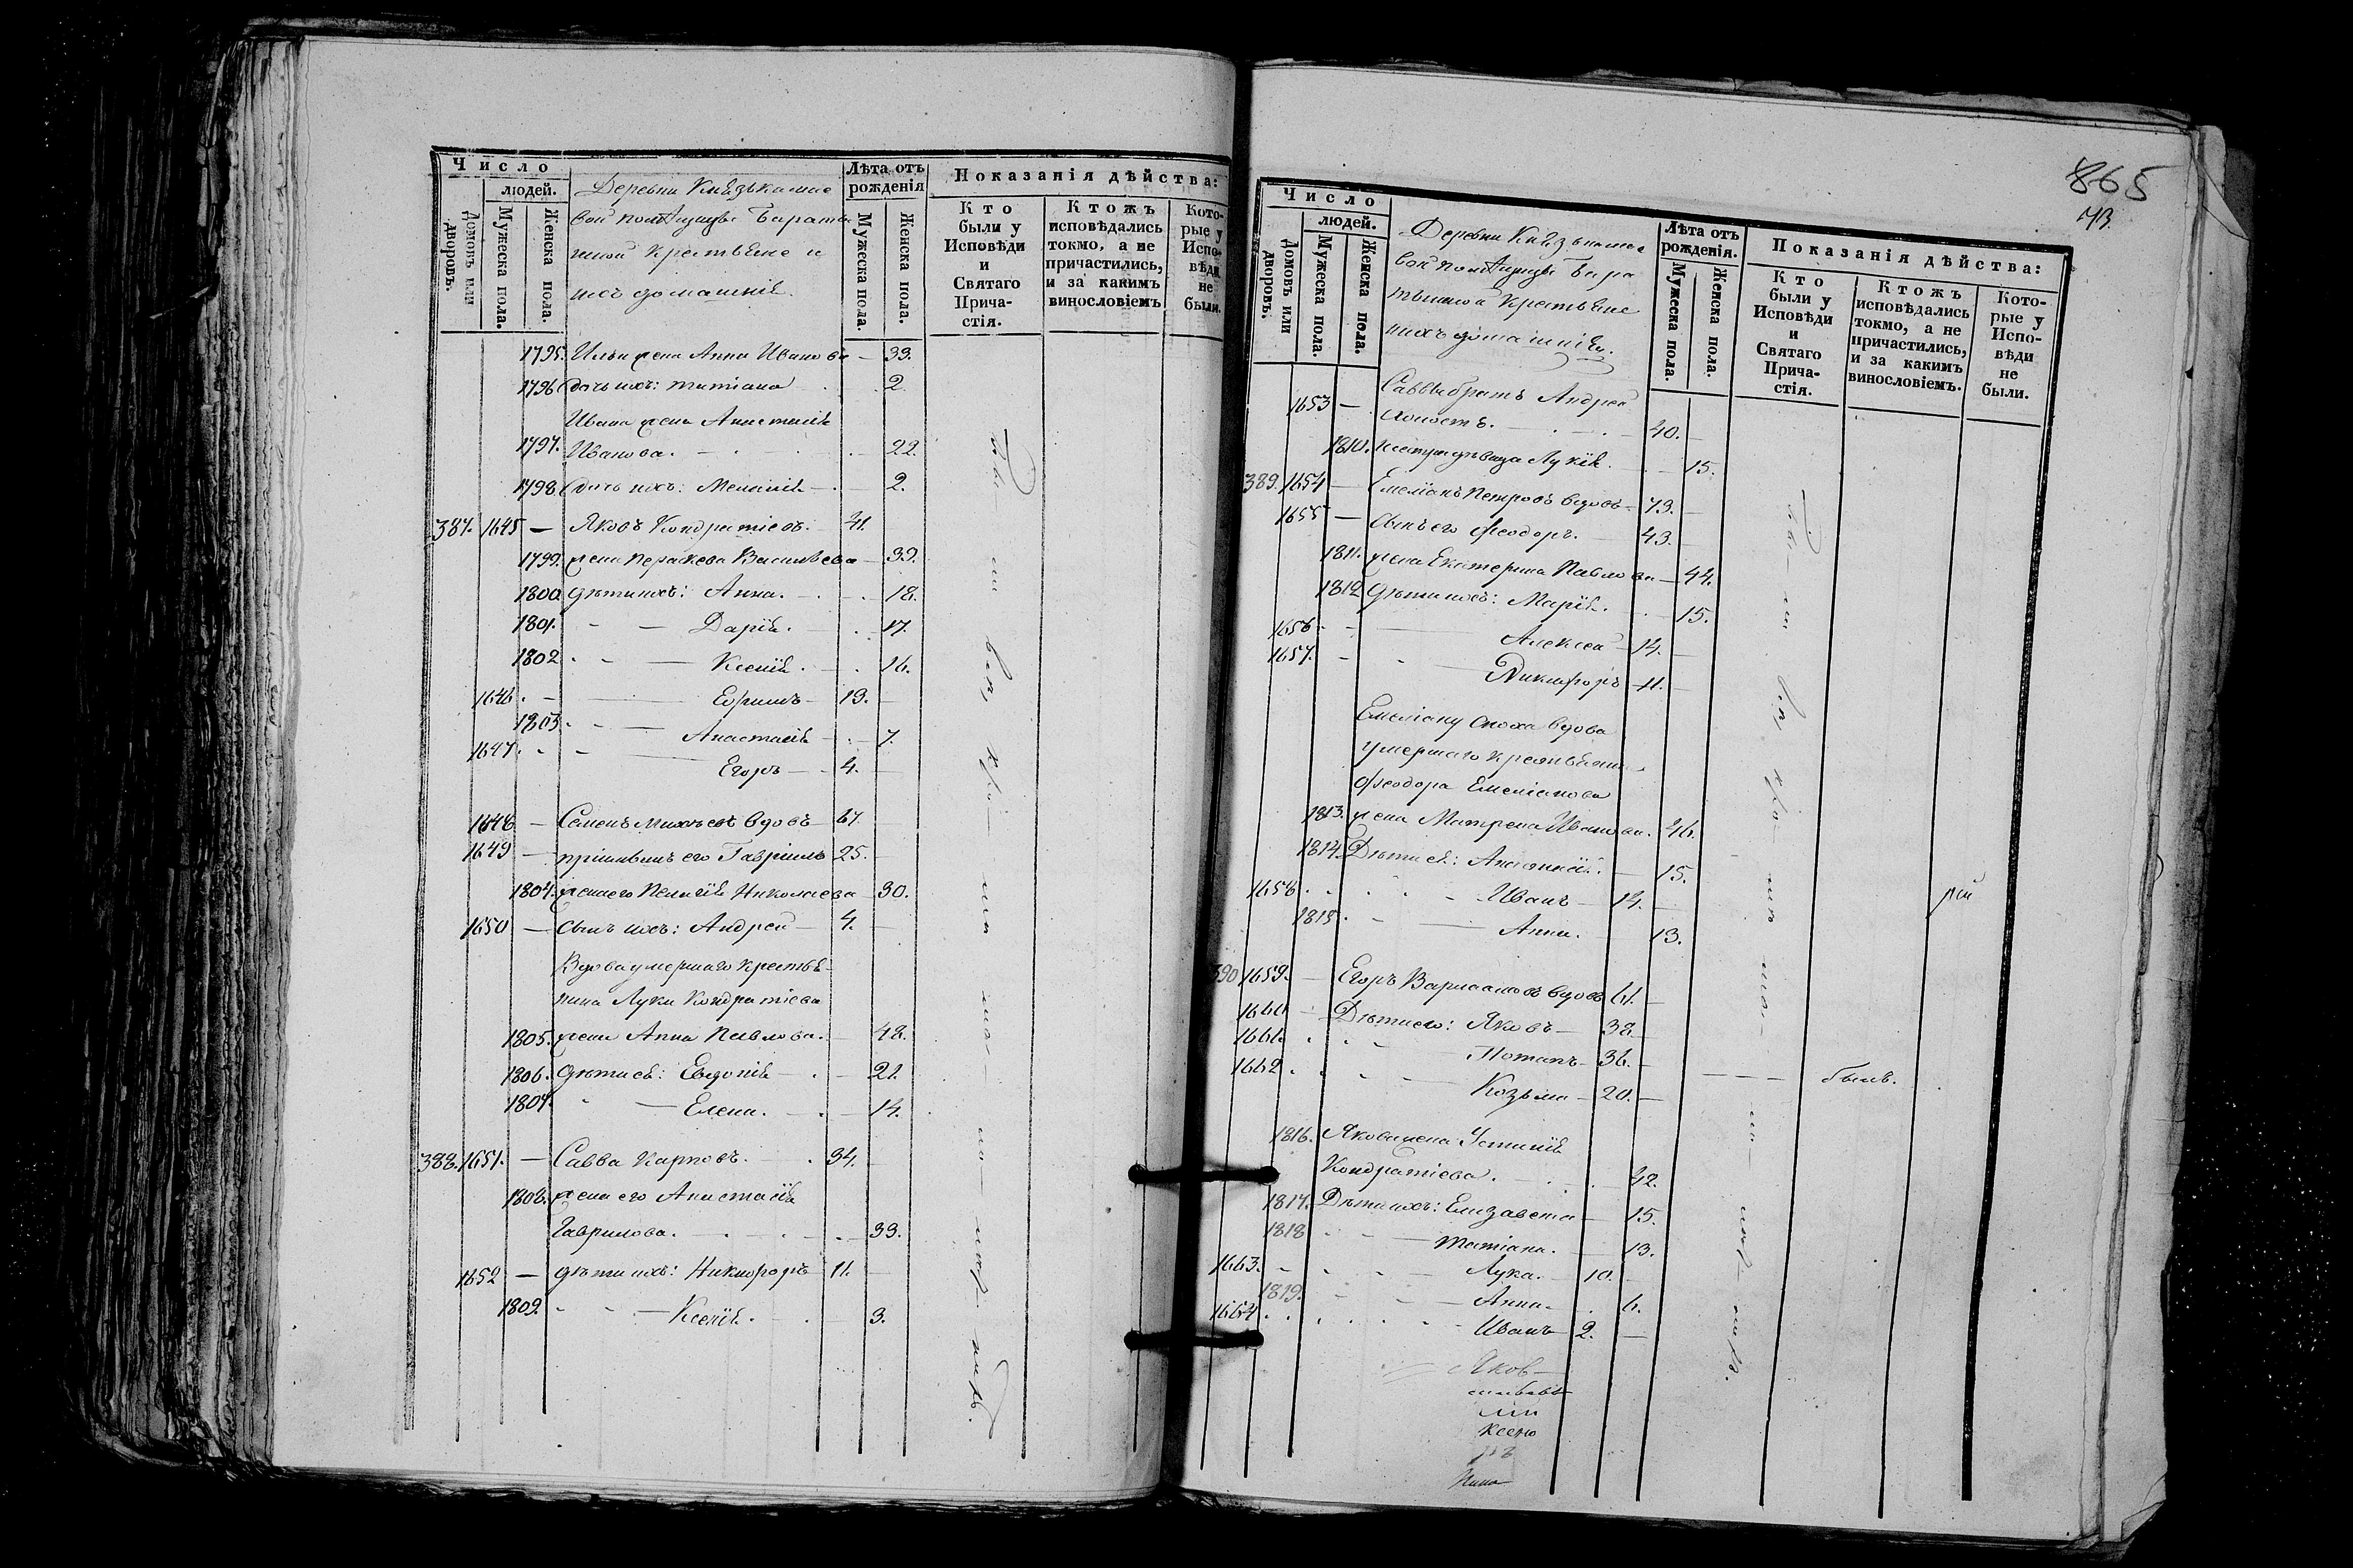 Число
людей.
Домовъ или дворовъ.
Мужеска пола.
Женска пола.
Деревни
вой помѣщицы
крестьяне и
ихъ домашнія.
Лѣта отъ рожденія
Мужеска пола.
Женска пола.
Показанія дѣйства:
Кто были у Исповѣди и Святаго Прича-стія.
Ктожъ исповѣдались токмо, а не причастились, и за какимъ винословіемъ
Кото-рые у Испо-вѣди не были.
1795. Ильи жена Анна Иванова — 33.
1796 дочь ихъ: Татіана 2
Ивана жена Анастасія
1797. Иванова. 22.
1798. дочь ихъ: 2.
387. 1645 — Яковъ Кондратіевъ. 41.
1799. жена Параскева Васильева — 39.
1800. дѣти ихъ: Анна. 18.
1801. Дарія. 17.
1802 Ксенія. 16.
1646. Ефимъ 19.
1803. Анастасія 7.
1647. Егоръ 4.
1648 — Семенъ вдовъ 67.
1649 — его Гавріилъ 25.
1804. жена его Пелагія Николаева 30.
1650 — сынъ ихъ: Андрей 4.
Вдова умершаго крестья-
нина Луки Кондратіева
1805. жена Анна Павлова. 48.
1806. дѣти ея: Евдокія 21.
1807. Елена. 14.
388. 1651. — Савва Карповъ. 34.
1808. жена его Анастасія
Гаврилова. 33.
1652 — дѣти ихъ: Никифоръ 11.
1809. Ксенія. 3.
865
73.
Число
людей.
Домовъ или дворовъ.
Мужеска пола.
Женска пола.
Деревни
вой помѣщицы
крестьяне
ихъ домашнія.
Лѣта отъ рожденія.
Мужеска пола.
Женска пола.
Показанія дѣйства:
Кто были у Исповѣди и Святаго Прича-стія.
Ктожъ исповѣдались токмо, а не причастились, и за какимъ винословіемъ.
Кото-рые у Испо-вѣди не были.
Саввы братъ Андрей
1653 — холостъ. 40. —
1810. сестра дѣвица Лукія. 15.
389. 1654 — Емеліанъ Петровъ вдовъ 73. —
1655 — сынъ его Феодоръ. 43. —
1811. жена Екатерина Павлова — 44.
1812 дѣти ихъ: Марія. 15.
1656 Алексей 14. —
1657. Никифоръ 11. —
Емеліану сноха вдова
умершаго крестьянина
Феодора Емеліанова
1813. жена Матрена Иванова. 46.
1814. Дѣти ея: 15.
1658 Иванъ 14. —
1815. Анна. 13.
390 1659. — Егоръ Варлаамовъ вдовъ 61. —
1660 — Дѣти его: Яковъ — 38. —
1661. Потапъ 36. —
1662 Козьма 20. —
были.
1816. Якова жена Устинія
Кондратіева. 42.
1817. Дѣти ихъ: Елизавета 15.
1818 Татіана. 13.
1663. Лука. 10. —
1819. Анна. 6.
1664 Иванъ 2. —
Яков